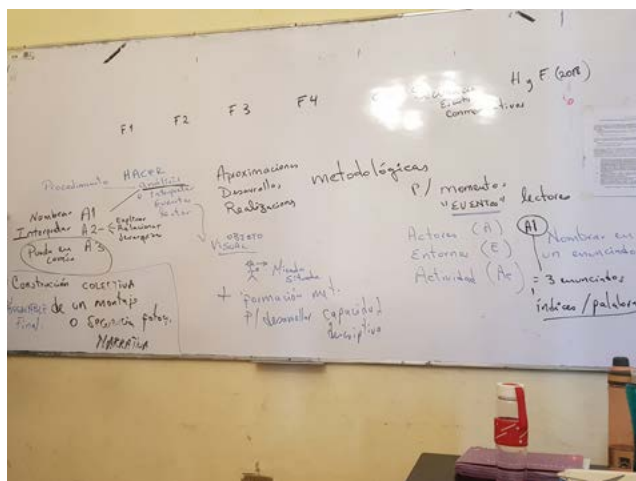 F1 F2 F3 F4
H y F (2018)
Procedimiento HACER
análisis
Interpreta
Eventos
Nombrar A1
Interpretar A2 - Explicar
Relacionar
Jerarquizar
Puesta en común A3
Construcción colectiva
de un montaje
o secuencia fotog.
Final
NARRATIVA
Aproximaciones
Desarrollos metodológicas
Realizaciones
OBJETO
VISUAL
Mirada
Situada
+ formación met.
P/ desarrollar capacidad
descriptiva
P/ momento:
"EVENTO" lectores
Actores (A)
Entorno (E)
Actividad (Ac)
A1
Nombrar en
un enunciado
= 3 enunciados
índices / palabra